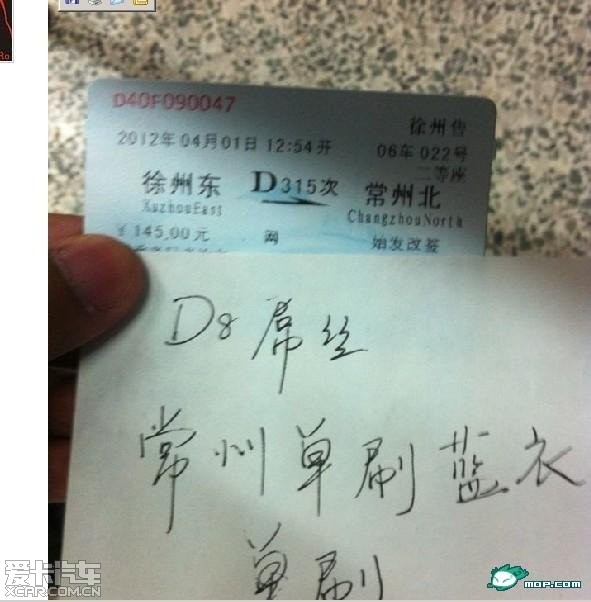 D40F090047
徐州售
2012年04月01日12:54开
06车022号
二等座
徐州东 D315次 常州北
XuzhouEast ChangzhouNorth
￥145.00元 网 始发改签
D8屌丝
常州单刷蓝衣
单刷
爱卡汽车
XCAR.COM.CN
MOP.COM